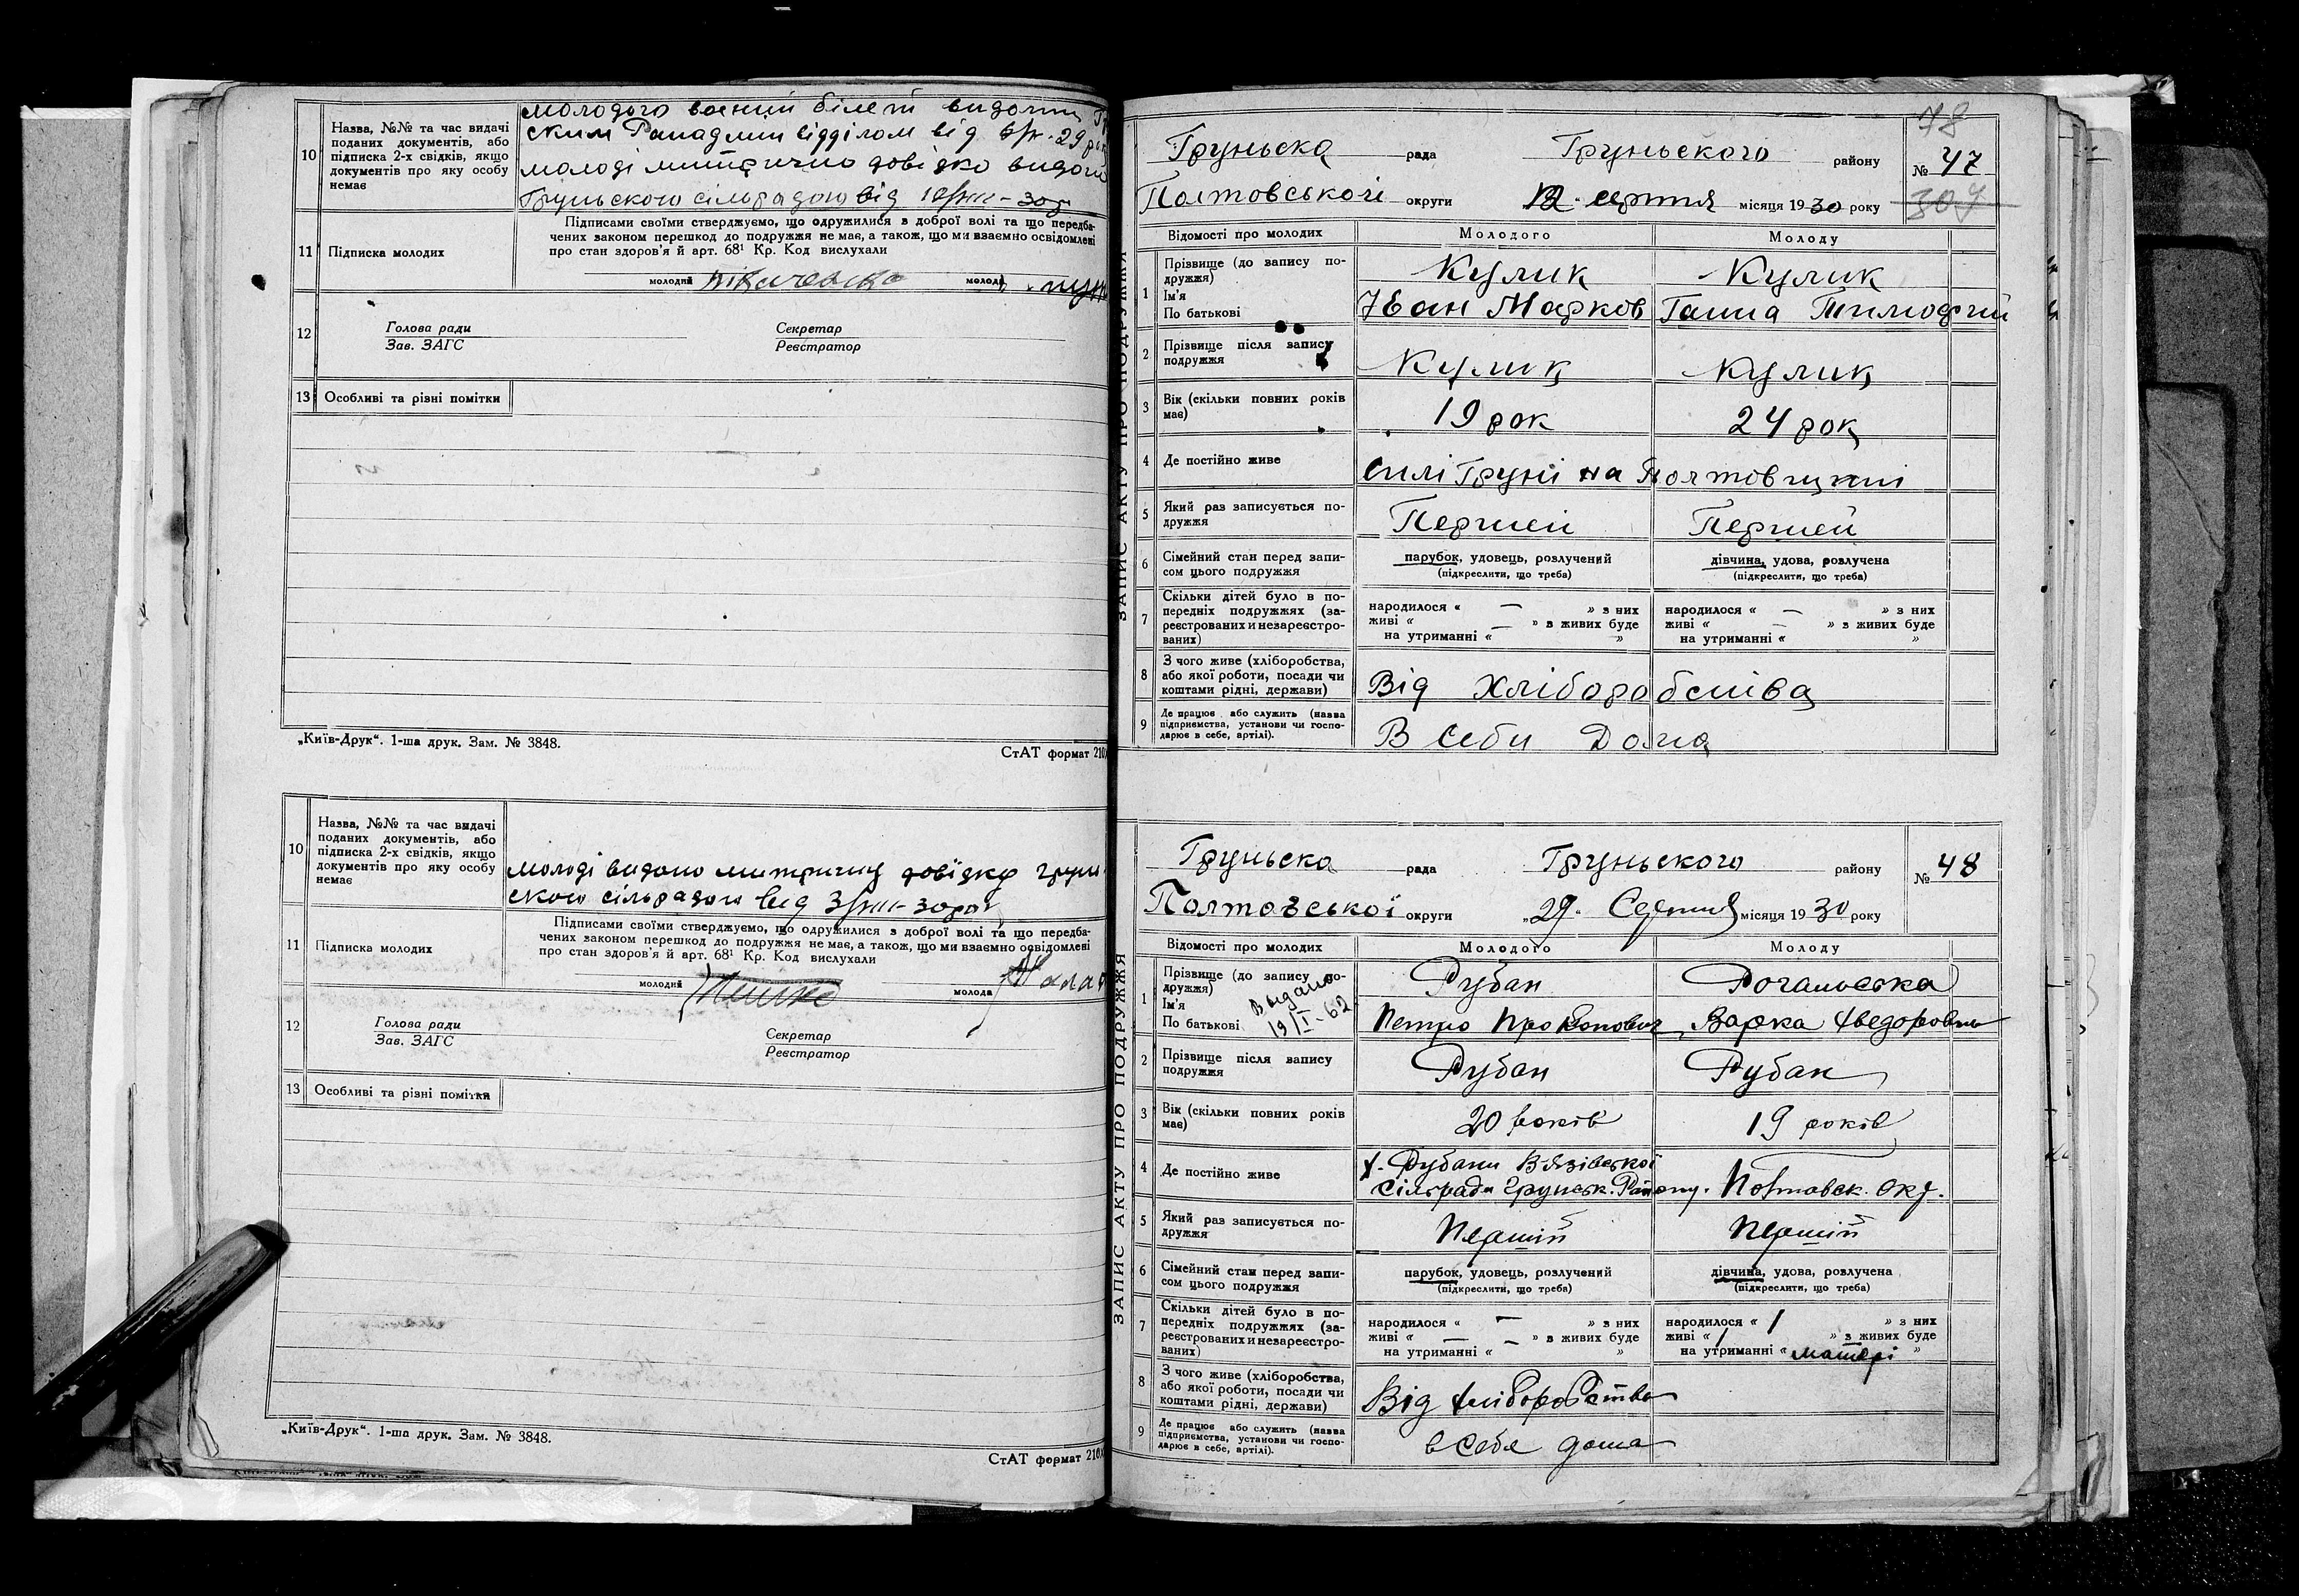 10 Назва, №№ та час видачі
поданих документів, або
підписка 2-х свідків, якщо
документів про яку особу
немає
молодого воєнций білет видоти
ским відділом від 29
молоді митрично довідко видоти
сільрадою від
11 Підписка молодих
Підписами своїми стверджуємо, що одружилися з доброї волі та що передба-
чених законом перешкод до подружжя не має, а також, що ми взаємно освідомлені
про стан здоров'я й арт. 68¹ Кр. Код вислухали
молодий молода
12 Голова ради Секретар
Зав. ЗАГС Реєстратор
13 Особливі та різні помітки
„Київ-Друк“. 1-ша друк. Зам. № 3848.
СтАТ формат 210
10 Назва, №№ та час видачі
поданих документів, або
підписка 2-х свідків, якщо
документів про яку особу
немає
молоді видано митричну довідку грунь
ською сільрадою від
11 Підписка молодих
Підписами своїми стверджуємо, що одружилися з доброї волі та що передба-
чених законом перешкод до подружжя не має, а також, що ми взаємно освідомлені
про стан здоров'я й арт. 68¹ Кр. Код вислухали
молодий молода
12 Голова ради Секретар
Зав. ЗАГС Реєстратор
13 Особливі та різні помітки
„Київ-Друк“. 1-ша друк. Зам. № 3848.
СтАТ формат 210
ЗАПИС АКТУ ПРО ПОДРУЖЖЯ
78
Груньска рада Груньского району № 47
Полтовської округи 12 серпня місяця 1930 року
307
Відомості про молодих Молодого Молоду
1 Прізвище (до запису по-
дружжя) Кулик Кулик
Ім'я
По батькові Іван Марков Ганна Тимофий
2 Прізвище після запису
подружжя Кулик Кулик
3 Вік (скільки повних років
має) 19 рок 24 рок
4 Де постійно живе силі Груні на Полтовщині
5 Який раз записується по-
дружжя Першей Першей
6 Сімейний стан перед запи-
сом цього подружжя
парубок, удовець, розлучений дівчина, удова, розлучена
(підкреслити, що треба) (підкреслити, що треба)
7 Скільки дітей було в по-
передніх подружжях (за-
реєстрованих и незареєстро-
ваних)
народилося « — » з них народилося « — » з них
живі « — » з живих буде живі « — » з живих буде
на утриманні « » на утриманні « »
8 З чого живе (хліборобства,
або якої роботи, посади чи
коштами рідні, держави) Від Хліборобства
9 Де працює або служить (назва
підприємства, установи чи госпо-
дарює в себе, артілі). В себи Дома
ЗАПИС АКТУ ПРО ПОДРУЖЖЯ
Груньска рада Груньского району № 48
Полтавської округи „29“ Серпня місяця 1930 року
Відомості про молодих Молодого Молоду
1 Прізвище (до запису по-
дружжя) Рубан Рогановська
Ім'я
По батькові Петро Прокопович Варка Хведоровна
Выдано
19/I-62
2 Прізвище після запису
подружжя Рубан Рубан
3 Вік (скільки повних років
має) 20 років 19 років
4 Де постійно живе х. Рубани Вязівської
сільради Груньск. Району. Полтавск. Окр.
5 Який раз записується по-
дружжя Перший Перший
6 Сімейний стан перед запи-
сом цього подружжя
парубок, удовець, розлучений дівчина, удова, розлучена
(підкреслити, що треба) (підкреслити, що треба)
7 Скільки дітей було в по-
передніх подружжях (за-
реєстрованих и незареєстро-
ваних)
народилося « — » з них народилося « 1 » з них
живі « — — » з живих буде живі « 1 » з живих буде
на утриманні « » на утриманні « матері »
8 З чого живе (хліборобства,
або якої роботи, посади чи
коштами рідні, держави) Від хліборобства
9 Де працює або служить (назва
підприємства, установи чи госпо-
дарює в себе, артілі). в себе дома